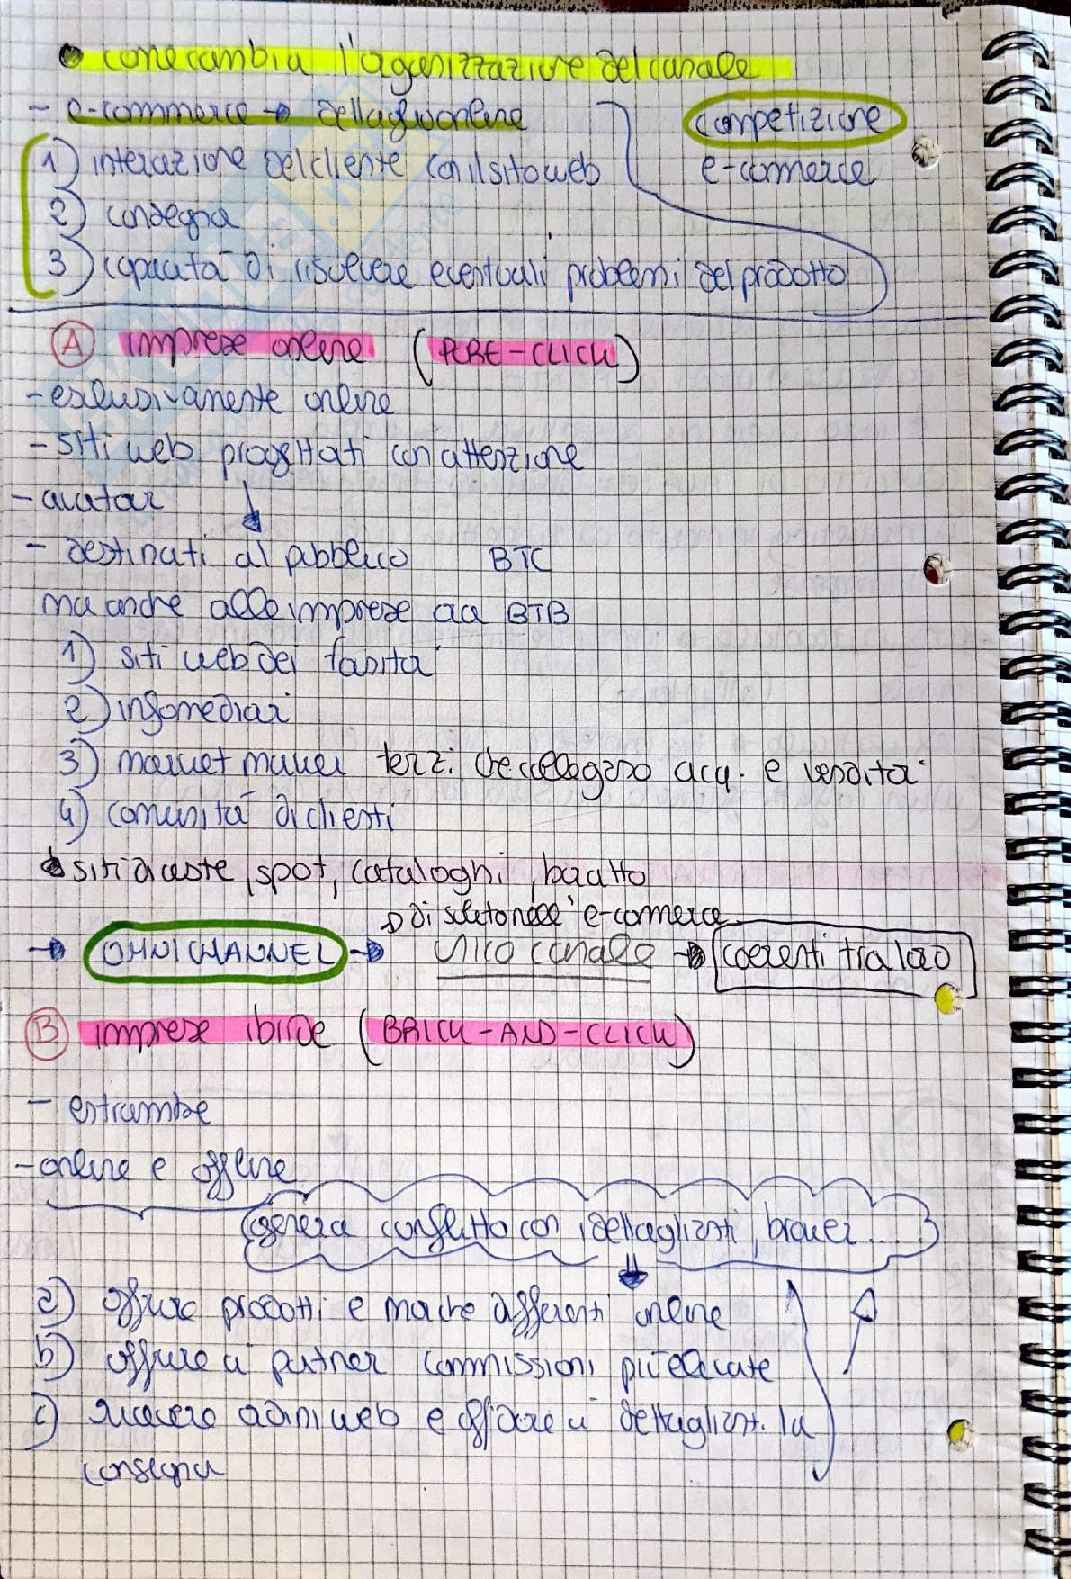 come cambia l'organizzazione del canale
- e-commerce → dettaglio online
competizione
e-commerce
1) interazione del cliente con il sito web
2) consegna
3) capacità di risolvere eventuali problemi del prodotto
A imprese online (PURE-CLICK)
- esclusivamente online
- siti web progettati con attenzione
- avatar
- destinati al pubblico BTC
ma anche alle imprese BTB
1) siti web dei fornitori
2) infomediari
3) market maker terzi che collegano acq. e vendita
4) comunità di clienti
siti di aste, spot, cataloghi, baratto
e-commerce
→ OMNICHANNEL → unico canale → coerenti tra loro
B imprese ibride (BRICK-AND-CLICK)
- entrambe
- online e offline
genera conflitto con dettaglianti, broker
a) offrire prodotti e marche differenti online
b) offrire ai partner commissioni più elevate
c) ricevere ordini web e affidare ai dettaglianti la
consegna